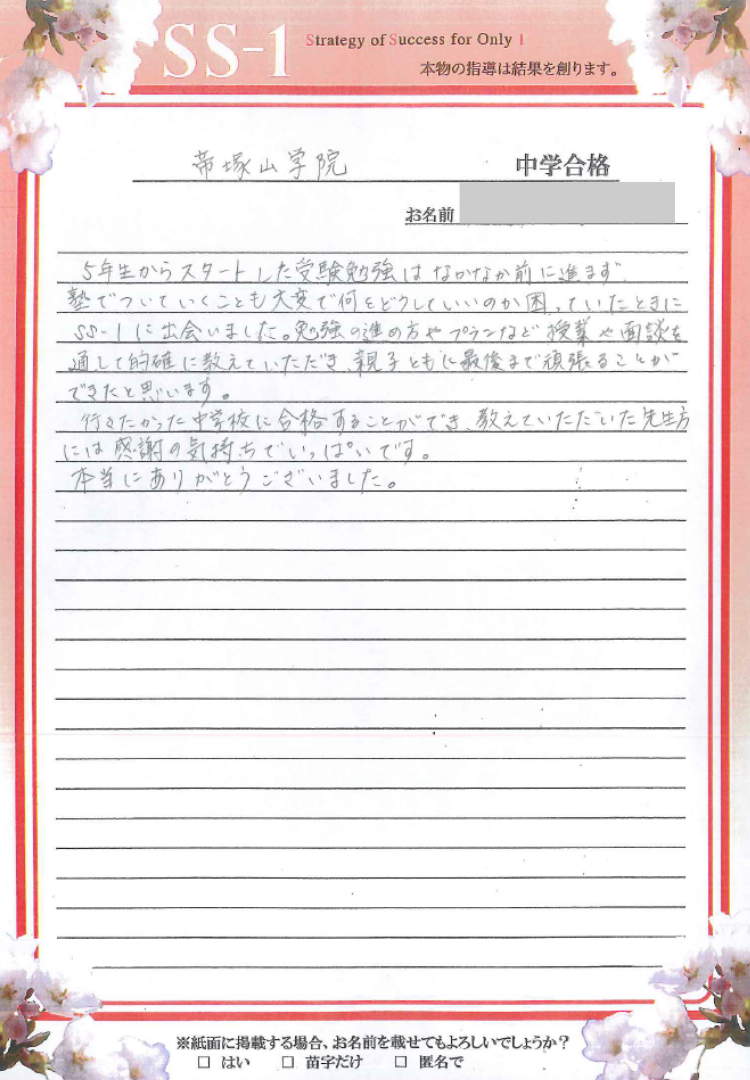 SS-1 Strategy of Success for Only 1
本物の指導は結果を創ります。
帝塚山学院 中学合格
お名前
5年生からスタートした受験勉強はなかなか前に進まず、
塾でついていくことも大変で何をどうしていいのか困っていたときに
SS-1に出会いました。勉強の進め方やプランなど授業や面談を
通して的確に教えていただき、親子ともに最後まで頑張ることが
できたと思います。
行きたかった中学校に合格することができ、教えていただいた先生方
には感謝の気持ちでいっぱいです。
本当にありがとうございました。
※紙面に掲載する場合、お名前を載せてもよろしいでしょうか?
□ はい □ 苗字だけ □ 匿名で